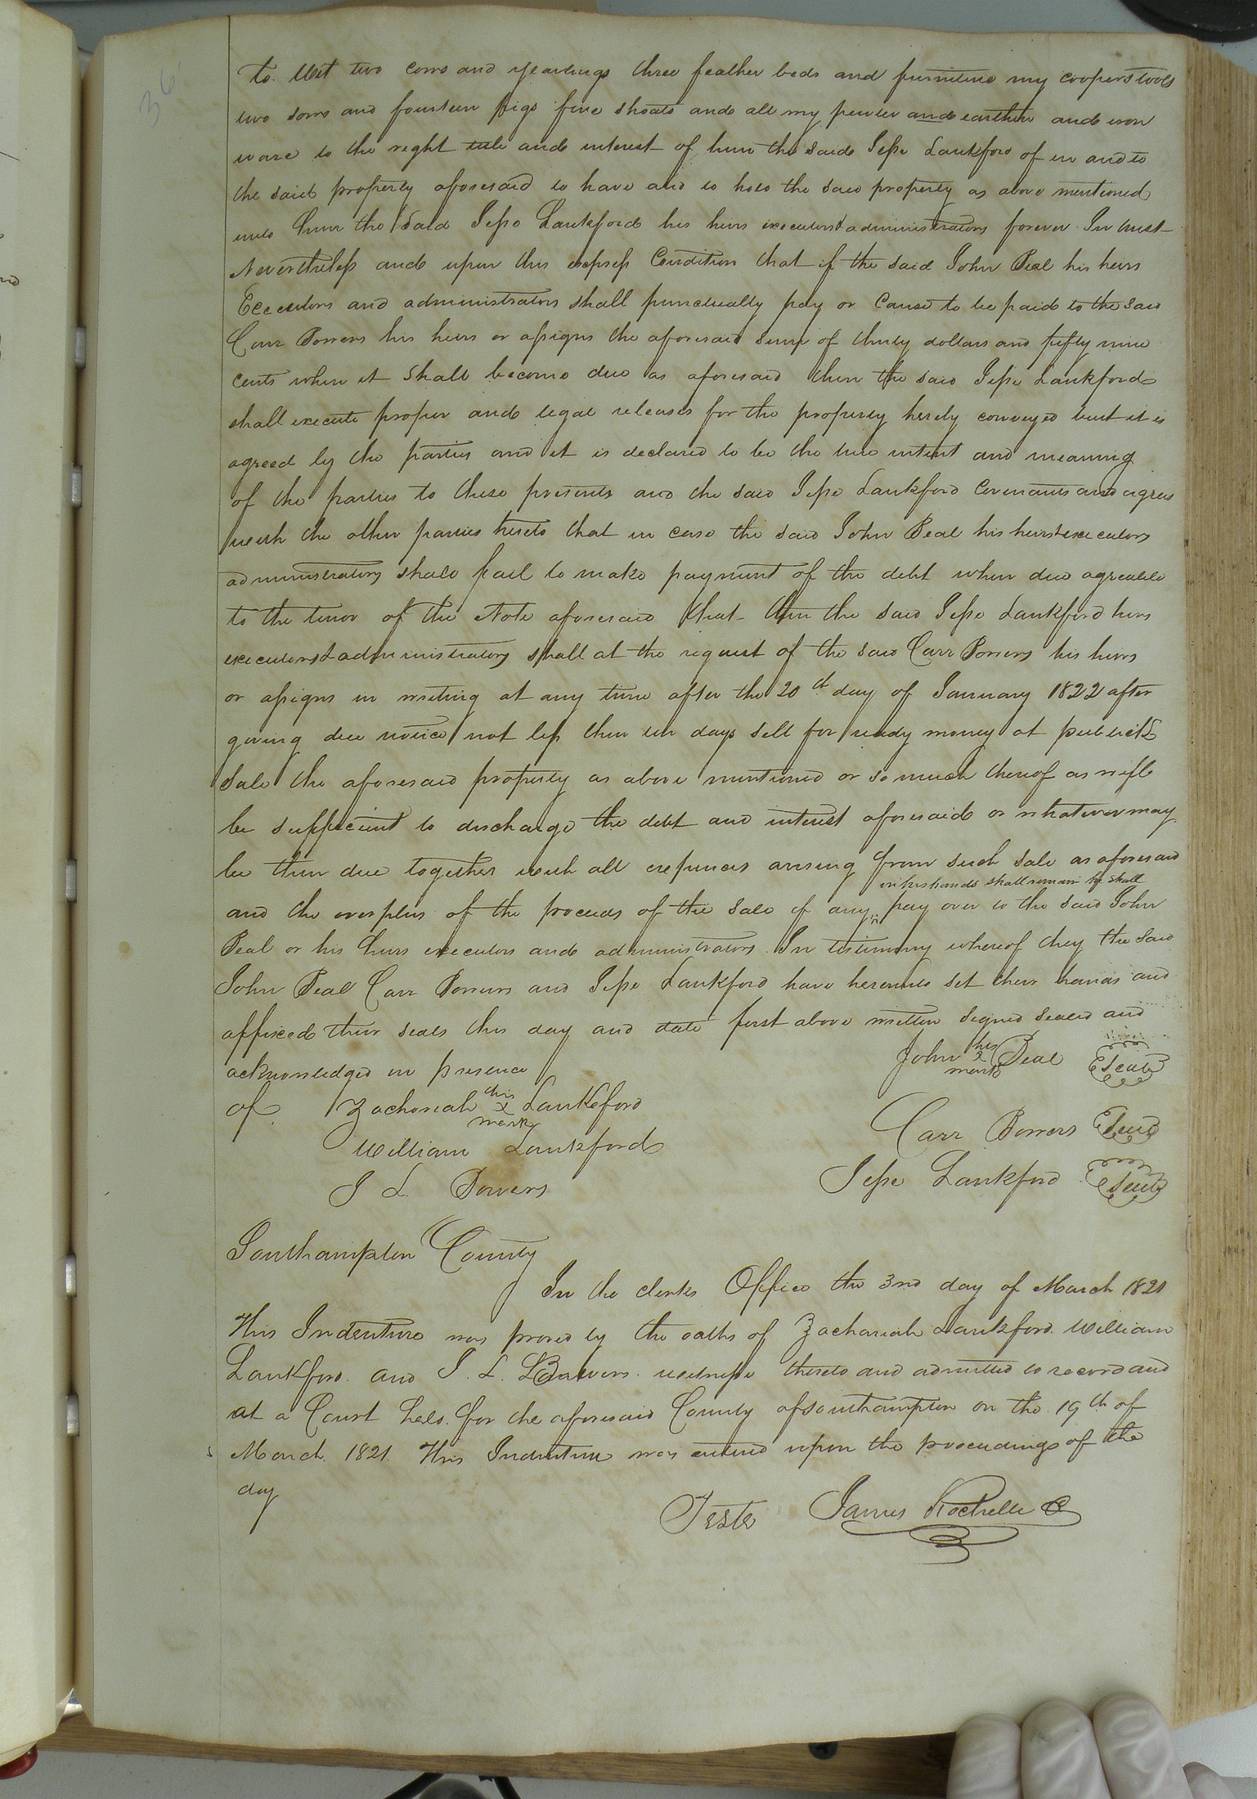 36
to Wit two cows and yearlings three feather beds and furniture my coopers tools
two sows and fourteen pigs five shoats and all my pewter and earthen and iron
ware to the right title and interest of him the said Jesse Lankford of in and to
the said property aforesaid to have and to hold the said property as above mentioned
unto him the said Jesse Lankford his heirs executors & administrators forever In trust
Nevertheless and upon this express Condition that if the said John Beal his heirs
Executors and administrators shall punctually pay or Cause to be paid to the said
Carr Bowers his heirs or assigns the aforesaid sum of thirty dollars and fifty nine
cents when it shall become due as aforesaid then the said Jesse Lankford
shall execute proper and legal releases for the property hereby conveyed but it is
agreed by the parties and it is declared to be the true intent and meaning
of the parties to these presents and the said Jesse Lankford Covenants and agrees
with the other parties hereto that in case the said John Beal his heirs executors
administrators shall fail to make payment of the debt when due agreeable
to the tenor of the Note aforesaid that then the said Jesse Lankford heirs
executors & administrators shall at the request of the said Carr Bowers his heirs
or assigns in writing at any time after the 20th day of January 1822 after
giving due notice not less then ten days sell for ready money at publick
sale the aforesaid property as above mentioned or so much thereof as will
be sufficient to discharge the debt and interest aforesaid or whatever may
be then due together with all expences arising from such sale as aforesaid
in his hands shall remain shall
and the overplus of the proceeds of the sale if any pay over to the said John
Beal or his heirs executors and administrators. In testimony whereof they the said
John Beal Carr Bowers and Jesse Lankford have hereunto set their hands and
affixed their seals this day and date first above written signed sealed and
acknowledged in presence John his x mark Beal Seal
of Zachariah his x mark Lankford
Carr Bowers Seal
William Lankford
Jesse Lankford Seal
J L Bowers
Southampton County
In the clerks Office the 3rd day of March 1821
This Indenture was proved by the oaths of Zachariah Lankford William
Lankford and J. L. Bowers witnesses thereto and admitted to record and
at a Court held for the aforesaid County of Southampton on the 19th of
March 1821 This Indenture was entered upon the proceedings of the
day
Teste James Rochelle C